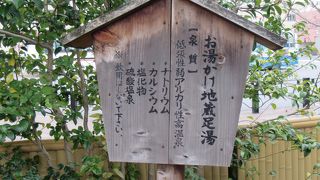 お湯かけ地蔵足湯
一泉質一
低張性弱アルカリ性高温泉
・ナトリウム
・カルシウム
・塩化物
・硫酸塩泉